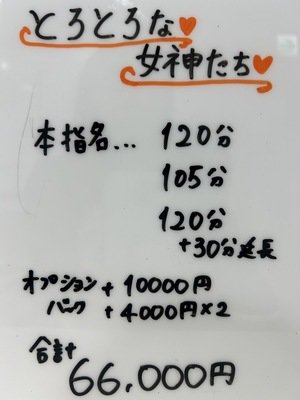 とろとろな
女神たち
本指名... 120分
105分
120分
+30分延長
オプション + 10000円
バック + 4000円×2
合計
66.000円